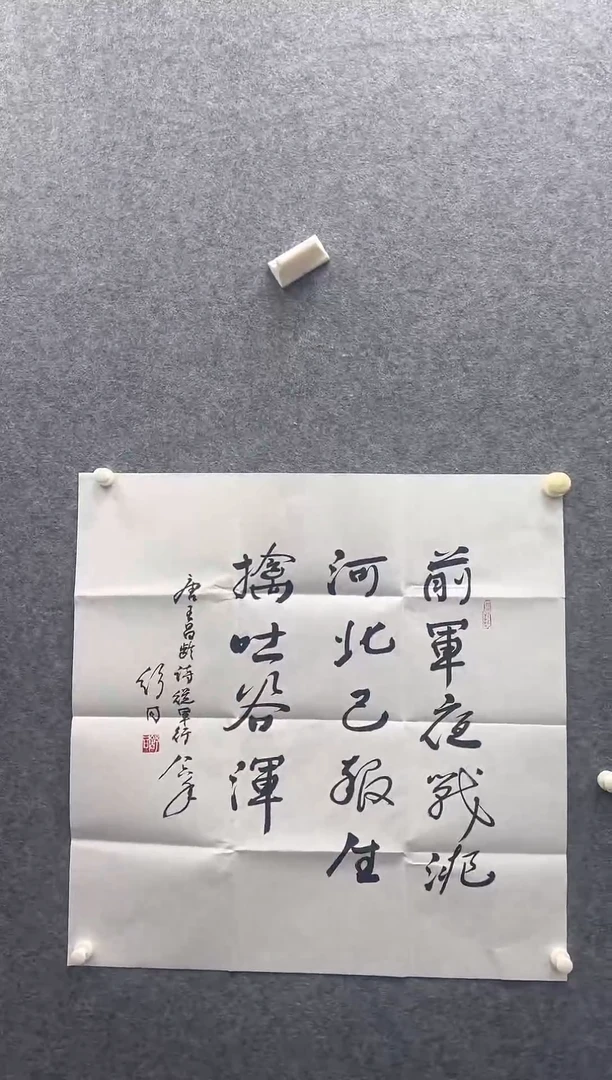 前軍夜戰洮
河北已報生
擒吐谷渾
唐王昌龄诗從軍行
舒同